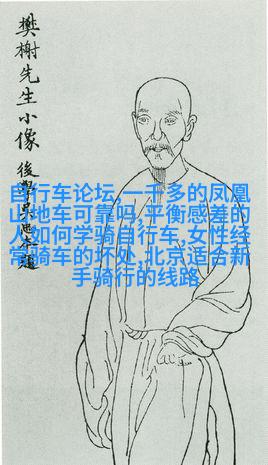 樊榭先生小像
後
自行车论坛,一千多的凤凰
山地车可靠吗,平衡感差的
人如何学骑自行车,女性经
常骑车的坏处,北京适合新
手骑行的线路